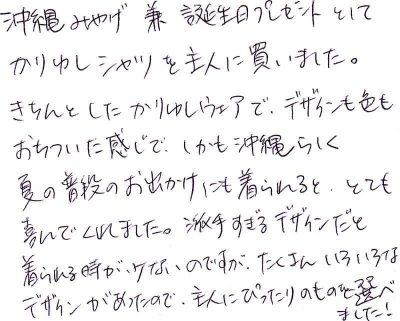 沖縄みやげ 兼 誕生日プレゼントとして
かりゆしシャツを主人に買いました。
きちんとしたかりゆしウェアで、デザインも色も
おちついた感じで、しかも沖縄らしく
夏の普段のお出かけにも着られると、とても
喜んでくれました。派手すぎるデザインだと
着られる時が少ないのですが、たくさんいろいろな
デザインがあったので、主人にぴったりのものを選べ
ました!